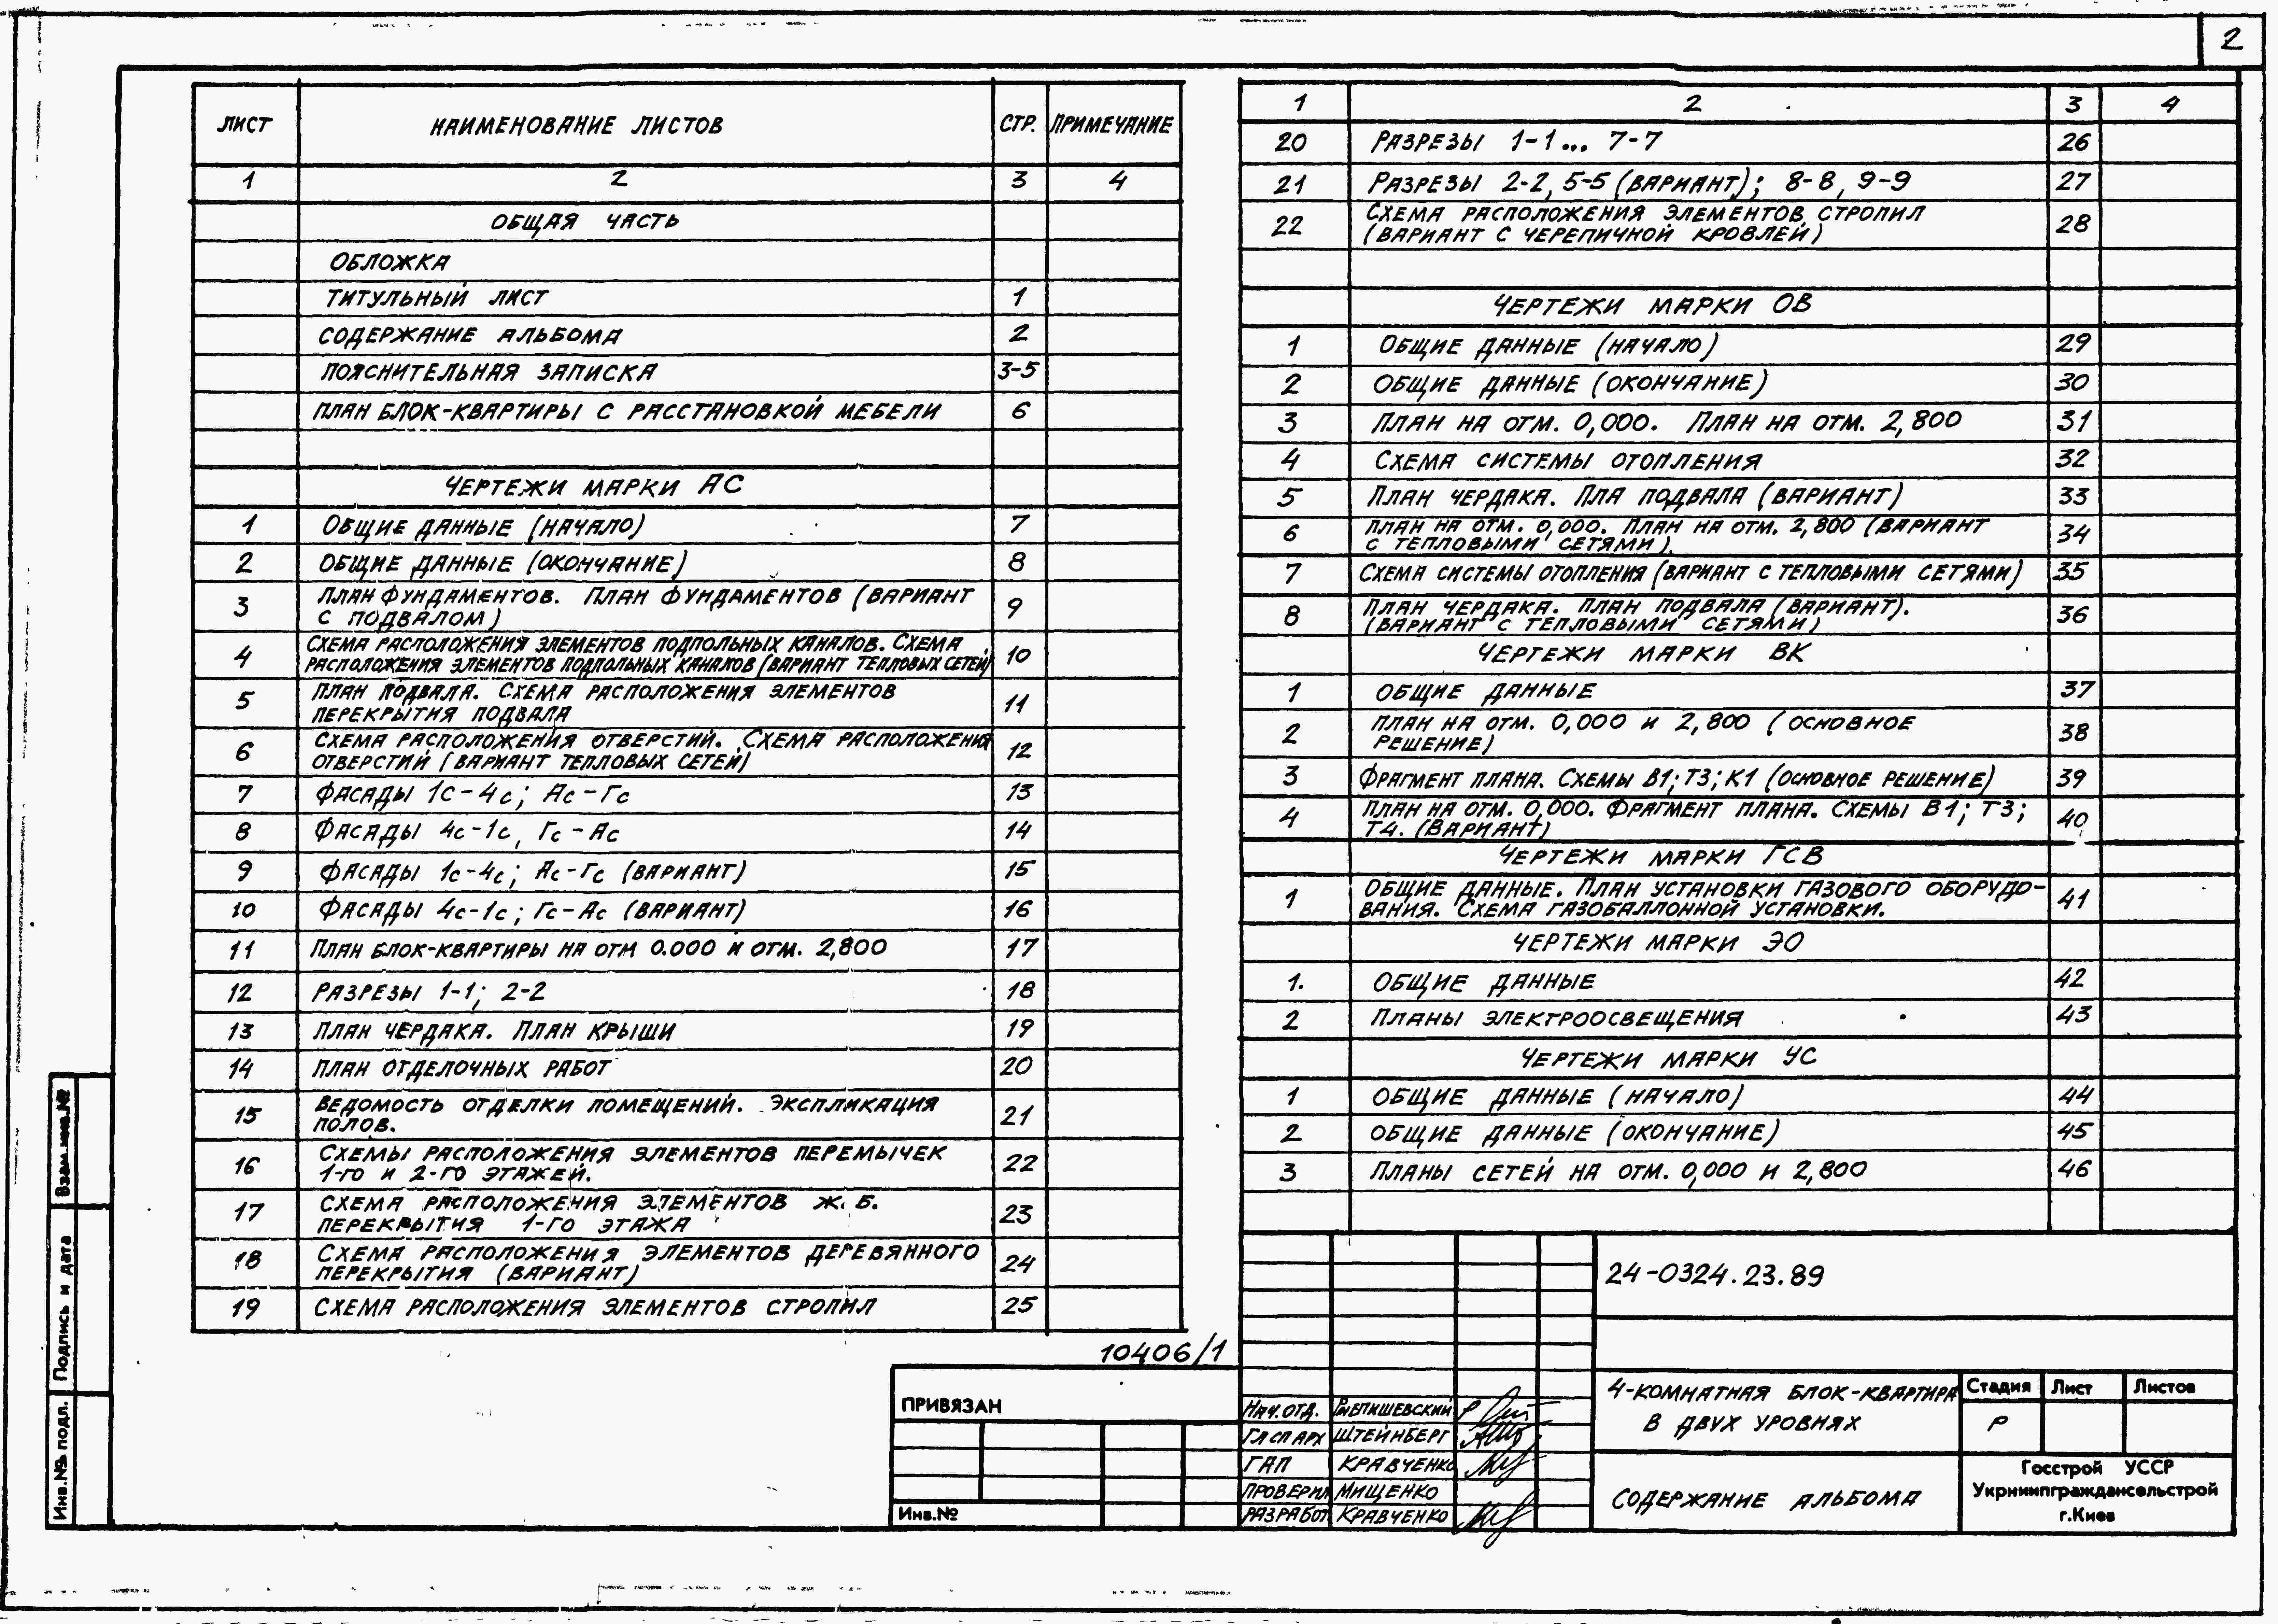 2
ЛИСТ НАИМЕНОВАНИЕ ЛИСТОВ СТР. ПРИМЕЧАНИЕ
1 2 3 4
ОБЩАЯ ЧАСТЬ
ОБЛОЖКА
ТИТУЛЬНЫЙ ЛИСТ 1
СОДЕРЖАНИЕ АЛЬБОМА 2
ПОЯСНИТЕЛЬНАЯ ЗАПИСКА 3-5
ПЛАН БЛОК-КВАРТИРЫ С РАССТАНОВКОЙ МЕБЕЛИ 6
ЧЕРТЕЖИ МАРКИ АС
1 ОБЩИЕ ДАННЫЕ (НАЧАЛО) 7
2 ОБЩИЕ ДАННЫЕ (ОКОНЧАНИЕ) 8
3 ПЛАН ФУНДАМЕНТОВ. ПЛАН ФУНДАМЕНТОВ (ВАРИАНТ
С ПОДВАЛОМ) 9
4 СХЕМА РАСПОЛОЖЕНИЯ ЭЛЕМЕНТОВ ПОДПОЛЬНЫХ КАНАЛОВ. СХЕМА
РАСПОЛОЖЕНИЯ ЭЛЕМЕНТОВ ПОДПОЛЬНЫХ КАНАЛОВ (ВАРИАНТ ТЕПЛОВЫХ СЕТЕЙ) 10
5 ПЛАН ПОДВАЛА. СХЕМА РАСПОЛОЖЕНИЯ ЭЛЕМЕНТОВ
ПЕРЕКРЫТИЯ ПОДВАЛА 11
6 СХЕМА РАСПОЛОЖЕНИЯ ОТВЕРСТИЙ. СХЕМА РАСПОЛОЖЕНИЯ
ОТВЕРСТИЙ (ВАРИАНТ ТЕПЛОВЫХ СЕТЕЙ) 12
7 ФАСАДЫ 1с-4с; Ас-Гс 13
8 ФАСАДЫ 4с-1с, Гс-Ас 14
9 ФАСАДЫ 1с-4с; Ас-Гс (ВАРИАНТ) 15
10 ФАСАДЫ 4с-1с; Гс-Ас (ВАРИАНТ) 16
11 ПЛАН БЛОК-КВАРТИРЫ НА ОТМ 0.000 И ОТМ. 2,800 17
12 РАЗРЕЗЫ 1-1; 2-2 18
13 ПЛАН ЧЕРДАКА. ПЛАН КРЫШИ 19
14 ПЛАН ОТДЕЛОЧНЫХ РАБОТ 20
15 ВЕДОМОСТЬ ОТДЕЛКИ ПОМЕЩЕНИЙ. ЭКСПЛИКАЦИЯ
ПОЛОВ. 21
16 СХЕМЫ РАСПОЛОЖЕНИЯ ЭЛЕМЕНТОВ ПЕРЕМЫЧЕК
1-ГО И 2-ГО ЭТАЖЕЙ. 22
17 СХЕМА РАСПОЛОЖЕНИЯ ЭЛЕМЕНТОВ Ж. Б.
ПЕРЕКРЫТИЯ 1-ГО ЭТАЖА 23
18 СХЕМА РАСПОЛОЖЕНИЯ ЭЛЕМЕНТОВ ДЕРЕВЯННОГО
ПЕРЕКРЫТИЯ (ВАРИАНТ) 24
19 СХЕМА РАСПОЛОЖЕНИЯ ЭЛЕМЕНТОВ СТРОПИЛ 25
1 2 3 4
20 РАЗРЕЗЫ 1-1... 7-7 26
21 РАЗРЕЗЫ 2-2, 5-5 (ВАРИАНТ); 8-8, 9-9 27
22 СХЕМА РАСПОЛОЖЕНИЯ ЭЛЕМЕНТОВ СТРОПИЛ
(ВАРИАНТ С ЧЕРЕПИЧНОЙ КРОВЛЕЙ) 28
ЧЕРТЕЖИ МАРКИ ОВ
1 ОБЩИЕ ДАННЫЕ (НАЧАЛО) 29
2 ОБЩИЕ ДАННЫЕ (ОКОНЧАНИЕ) 30
3 ПЛАН НА ОТМ. 0,000. ПЛАН НА ОТМ. 2,800 31
4 СХЕМА СИСТЕМЫ ОТОПЛЕНИЯ 32
5 ПЛАН ЧЕРДАКА. ПЛА ПОДВАЛА (ВАРИАНТ) 33
6 ПЛАН НА ОТМ. 0,000. ПЛАН НА ОТМ. 2,800 (ВАРИАНТ
С ТЕПЛОВЫМИ СЕТЯМИ). 34
7 СХЕМА СИСТЕМЫ ОТОПЛЕНИЯ (ВАРИАНТ С ТЕПЛОВЫМИ СЕТЯМИ) 35
8 ПЛАН ЧЕРДАКА. ПЛАН ПОДВАЛА (ВАРИАНТ).
(ВАРИАНТ С ТЕПЛОВЫМИ СЕТЯМИ) 36
ЧЕРТЕЖИ МАРКИ ВК
1 ОБЩИЕ ДАННЫЕ 37
2 ПЛАН НА ОТМ. 0,000 И 2,800 (ОСНОВНОЕ
РЕШЕНИЕ) 38
3 ФРАГМЕНТ ПЛАНА. СХЕМЫ В1; Т3; К1 (ОСНОВНОЕ РЕШЕНИЕ) 39
4 ПЛАН НА ОТМ. 0,000. ФРАГМЕНТ ПЛАНА. СХЕМЫ В1; Т3;
Т4. (ВАРИАНТ) 40
ЧЕРТЕЖИ МАРКИ ГСВ
1 ОБЩИЕ ДАННЫЕ. ПЛАН УСТАНОВКИ ГАЗОВОГО ОБОРУДО-
ВАНИЯ. СХЕМА ГАЗОБАЛЛОННОЙ УСТАНОВКИ. 41
ЧЕРТЕЖИ МАРКИ ЭО
1. ОБЩИЕ ДАННЫЕ 42
2 ПЛАНЫ ЭЛЕКТРООСВЕЩЕНИЯ 43
ЧЕРТЕЖИ МАРКИ УС
1 ОБЩИЕ ДАННЫЕ (НАЧАЛО) 44
2 ОБЩИЕ ДАННЫЕ (ОКОНЧАНИЕ) 45
3 ПЛАНЫ СЕТЕЙ НА ОТМ. 0,000 И 2,800 46
24-0324.23.89
10406/1
ПРИВЯЗАН
Инв.№
НАЧ.ОТД. ГНЕПИШЕВСКИЙ
ГЛСПАРХ ШТЕЙНБЕРГ
ГАП КРАВЧЕНКО
ПРОВЕРИЛ МИЩЕНКО
РАЗРАБОТ КРАВЧЕНКО
4-КОМНАТНАЯ БЛОК-КВАРТИРА
В ДВУХ УРОВНЯХ
Стадия Лист Листов
Р
СОДЕРЖАНИЕ АЛЬБОМА
Госстрой УССР
Укрниипграждансельстрой
г.Киев
Взам.инв.№
Подпись и дата
Инв.№ подл.